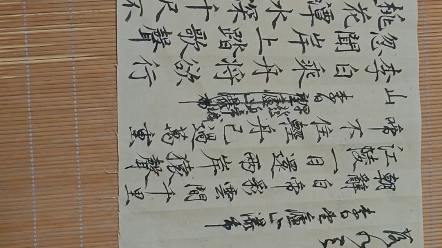 李白望廬山瀑布
朝辭白帝彩雲間千里
江陵一日還兩岸猿聲
啼不住輕舟已過萬重
山 李白
李白乘舟将欲行
忽聞岸上踏歌聲
桃花潭水深千尺不